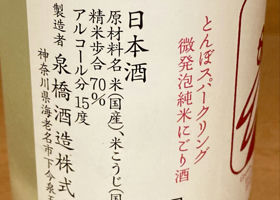 とんぼスパークリング
微発泡純米にごり酒
日本酒
原材料名 米(国産)、米こうじ(国
精米歩合 70%
アルコール分 15度
製造者 泉橋酒造株式
神奈川県海老名市下今泉五